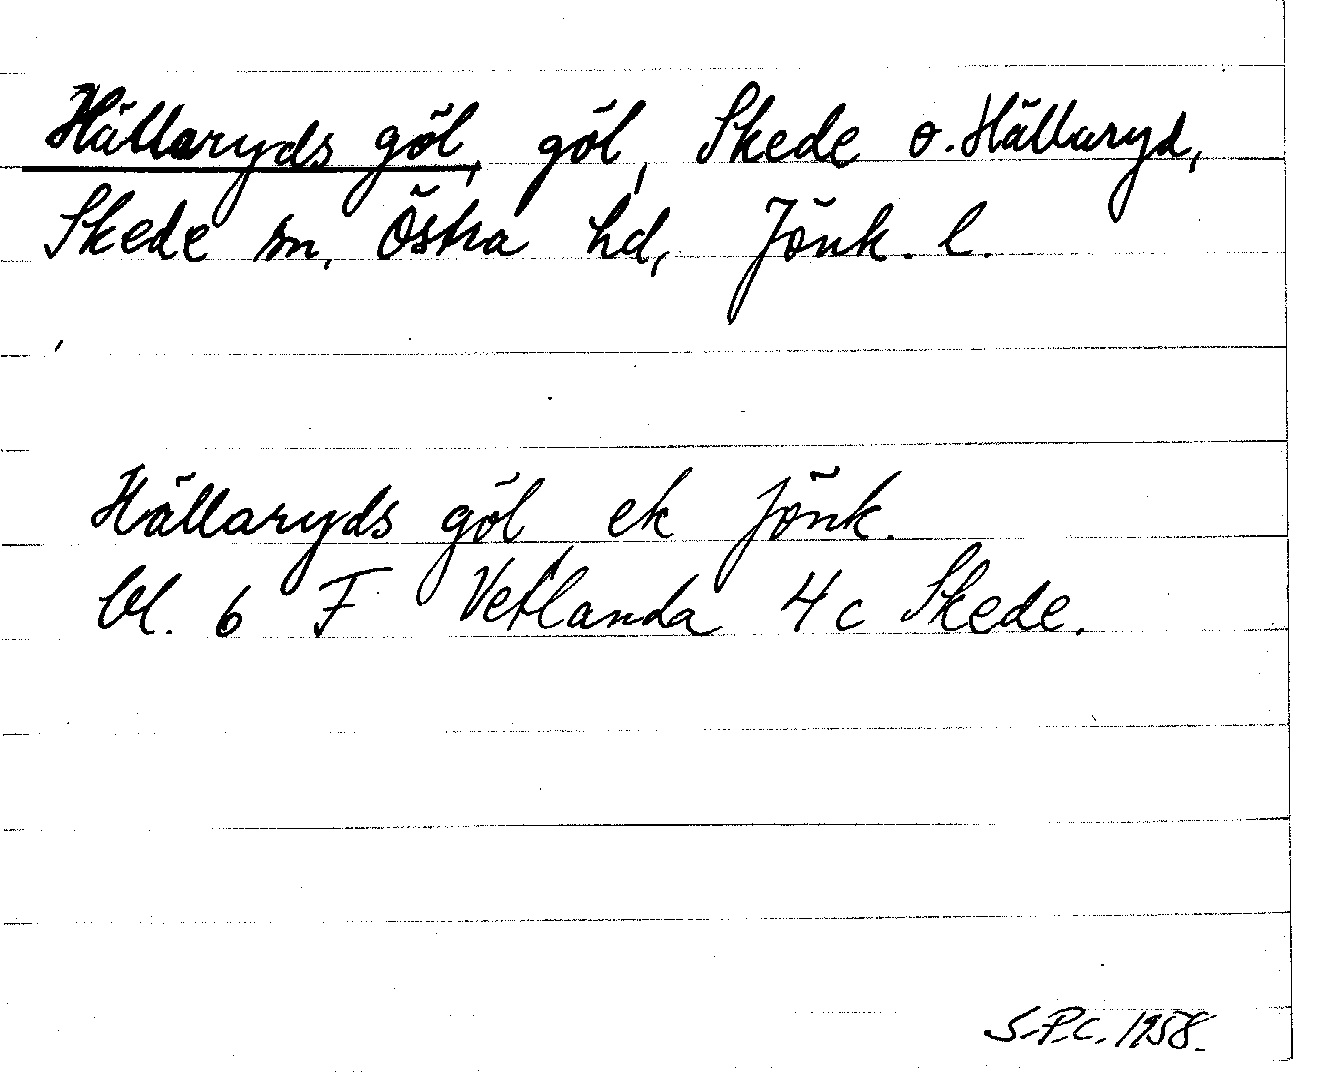 Hällaryds göl, göl, Skede o. Hällaryd,
Skede sn, Östra hd, Jönk. l.
Hällaryds göl ek Jönk.
bl. 6 F Vetlanda 4c Skede.
S.P.C. 1958.